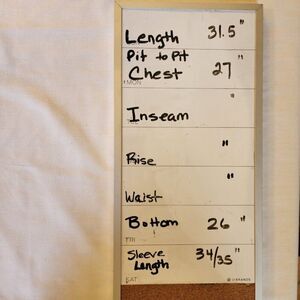 Length 31.5"
Pit to Pit
Chest 27"
MON
Inseam "
Rise "
Waist "
Bottom 26"
FRI
Sleeve 34/35"
Length
SAT